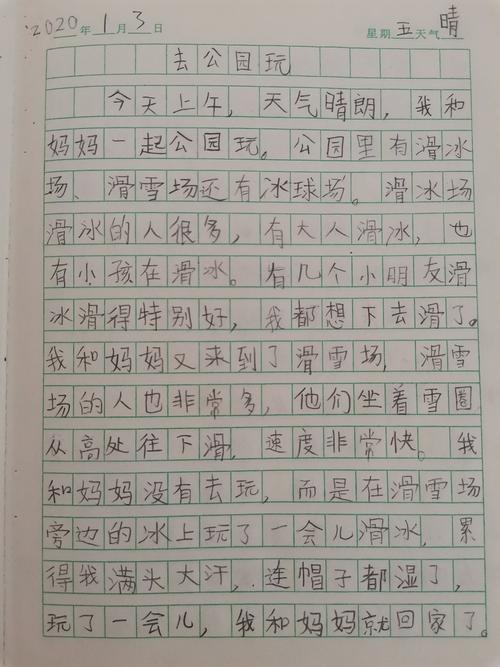 2020年1月3日 星期五天气晴
去公园玩
今天上午，天气晴朗，我和
妈妈一起公园玩。公园里有滑冰
场、滑雪场还有冰球场。滑冰场
滑冰的人很多，有大人滑冰，也
有小孩在滑冰。有几个小朋友滑
冰滑得特别好，我都想下去滑了。
我和妈妈又来到了滑雪场，滑雪
场的人也非常多，他们坐着雪圈
从高处往下滑，速度非常快。我
和妈妈没有去玩，而是在滑雪场
旁边的冰上玩了一会儿滑冰，累
得我满头大汗，连帽子都湿了，
玩了一会儿，我和妈妈就回家了。